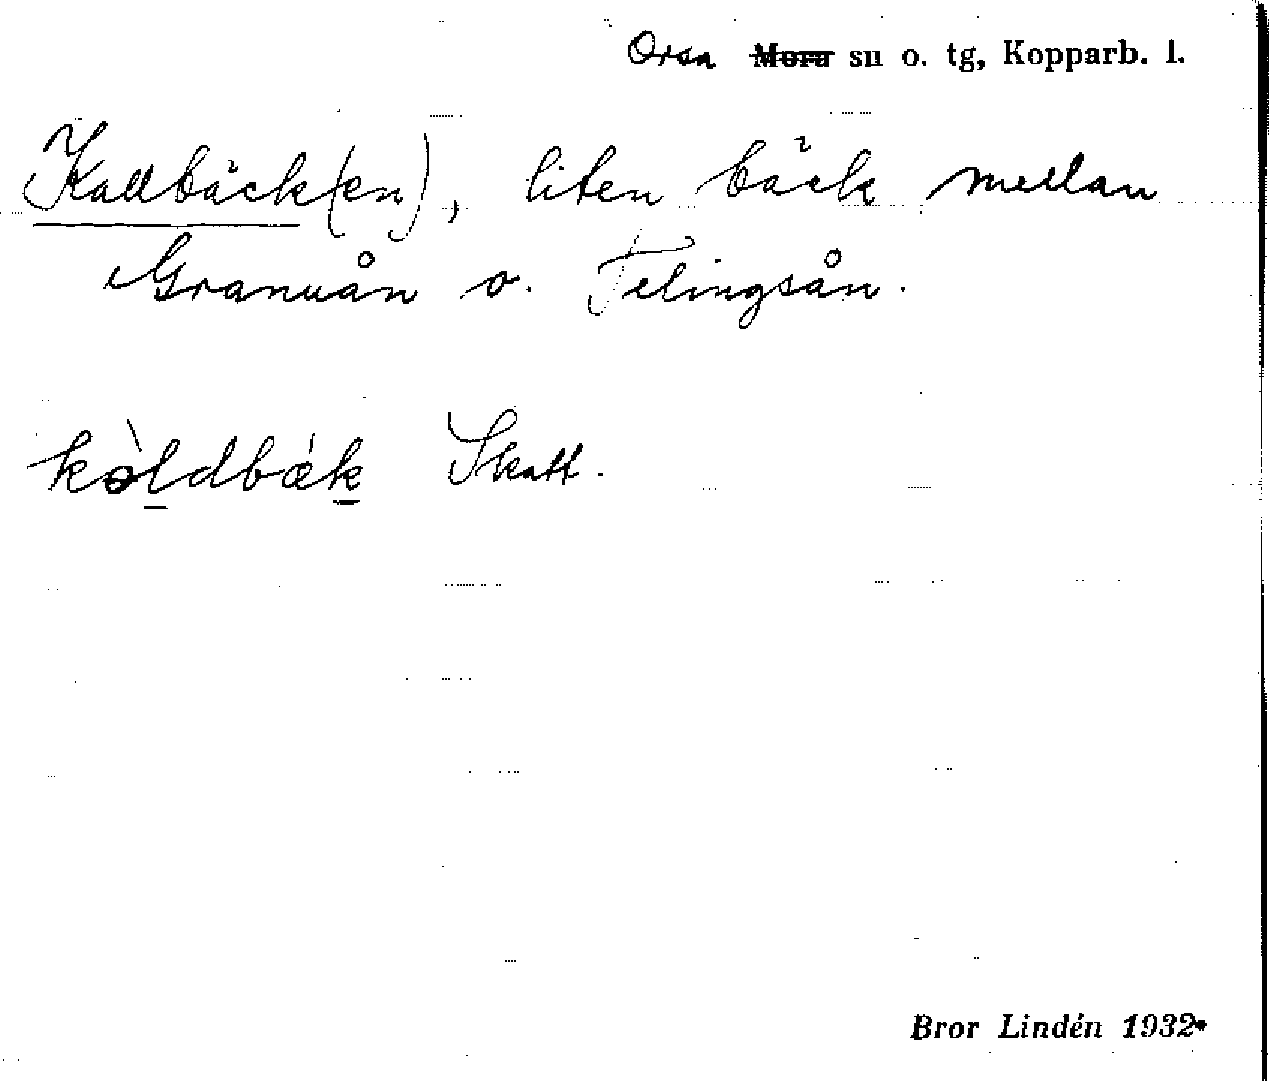 Orsa Mora su o. tg, Kopparb. l.
Kallbäck(en), liten bäck mellan
Granuån o. Telingsån.
kòldbǽk Skatt.
Bror Lindén 1932.